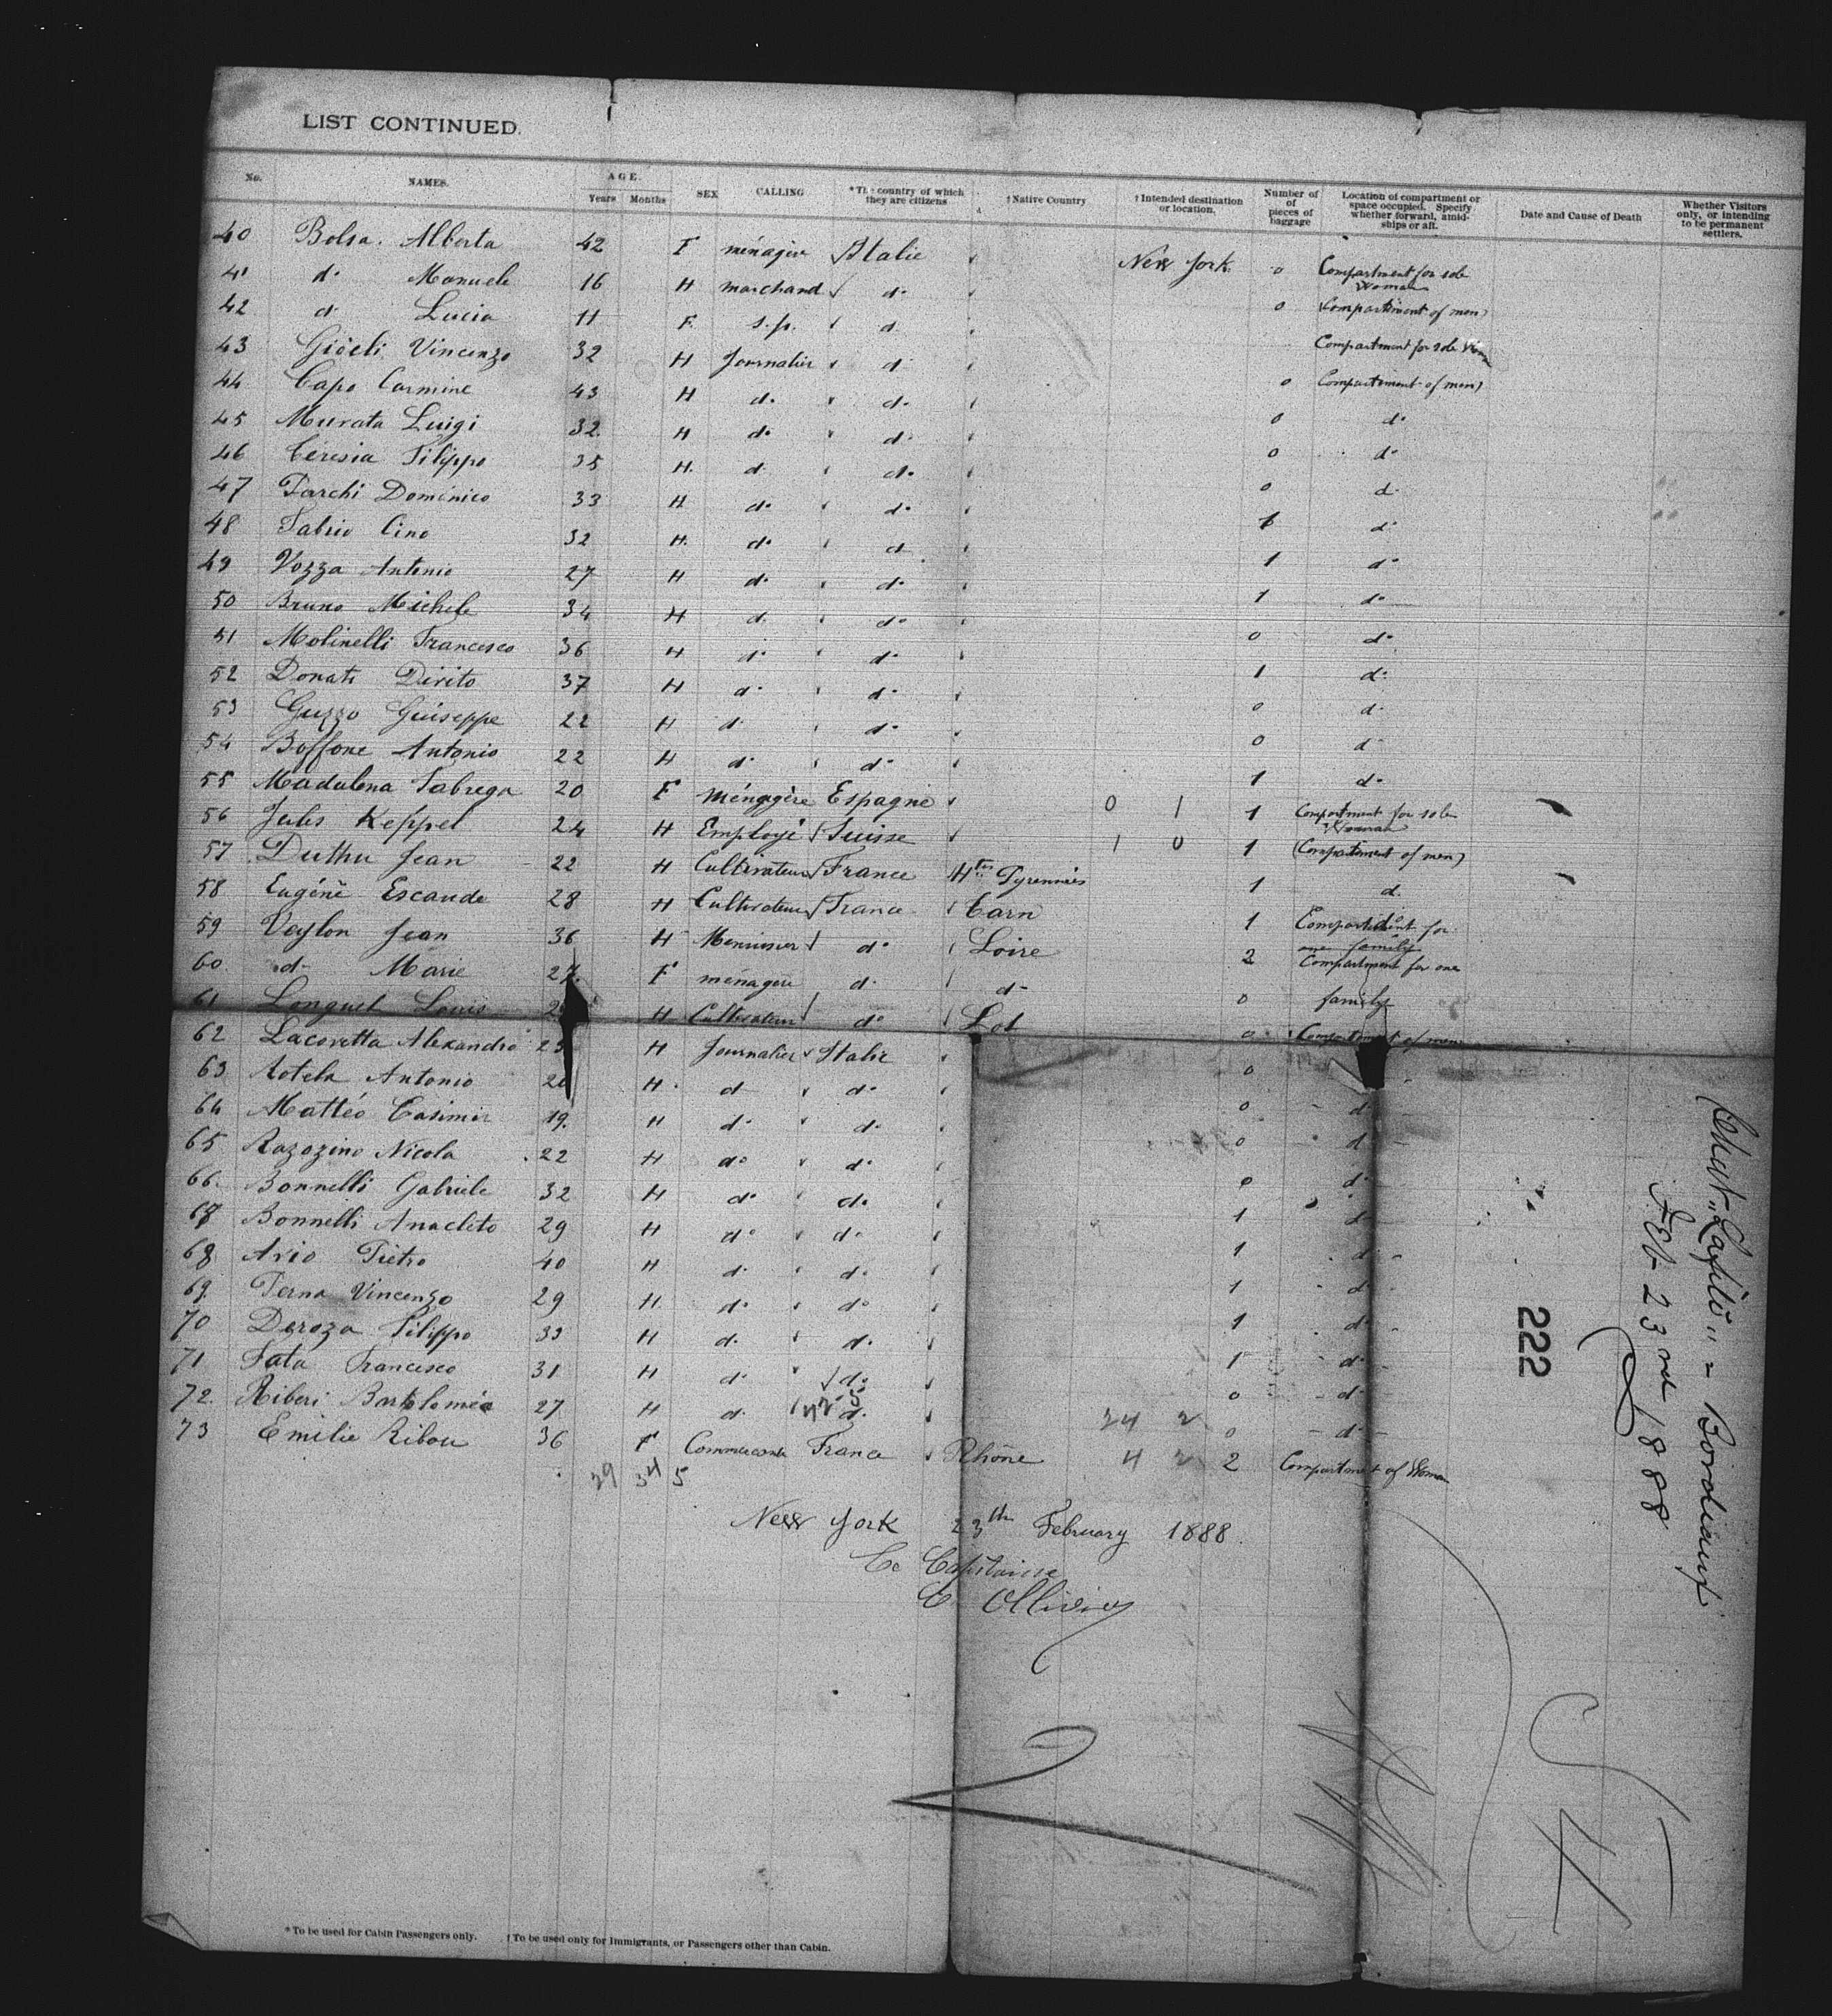 LIST CONTINUED.
No. NAMES. AGE. Years Months SEX CALLING *The country of which they are citizens †Native Country †Intended destination or location. Number of of pieces of baggage Location of compartment or space occupied. Specify whether forward, amidships or aft. Date and Cause of Death Whether Visitors only, or intending to be permanent settlers.
40 Bolsa Alberta 42 F ménagère Italie New York 0 Compartment for sole Woman
41 do Manuele 16 H marchand do 0 (Compartiment of men)
42 do Lucia 11 F. s.p. d. Compartment for sole
43 Gioeli Vincenzo 32 H Journalier d 0 Compartiment of men)
44 Capo Carmine 43 H do do 0 do
45 Murata Luigi 32 H do d. 0 do
46 Ceresia Filippo 35 H. d. do 0 d.
47 Parchi Domenico 33 H do do 1 d.
48 Fabrio Cino 32 H. do d 1 do
49 Vozza Antonio 27 H do do 1 do
50 Bruno Michele 34 H d. do 0 do
51 Molinelli Francesco 36 H do do 1 do
52 Donati Dirito 37 H do do 0 d.
53 Guzzo Guiseppe 22 H d. do 0 d
54 Boffone Antonio 22 H do do 1 do
55 Madalena Fabrega 20 F Ménagère Espagne 0 1 1 Compartment for sole Woman
56 Jules Keppel 24 H Employé Suisse 1 0 1 (Compartiment of men)
57 Duthu Jean 22 H Cultivateur France Htes Pyrennées 1 d.
58 Eugéne Escande 28 H Cultivateur France Tarn 1 Compartment for one family
59 Veylon Jean 36 H Menuisier do Loire 2 Compartment for one
60 do Marie 27 F ménagère d. do 0 family
61 Longuet Louis H Cultivateur do Lot 0 Compartiment of men
62 Lacovetta Alexandro H Journalier Italie 0
63 Rotela Antonio H. d do 0 d
64 Mattéo Casimir 19. H do do 0 d
65 Razozino Nicola 22 H do do 0 d
66 Bonnelli Gabriele 32 H do do 1 d
67 Bonnelli Anacleto 29 H do do 1 d
68 Ario Pietro 40 H d. d. 1 d
69 Perna Vincenzo 29 H. do do 1 d
70 Deroza Filippo 33 H d. d. 1 d
71 Fata Francesco 31 H d. do 0 d
72. Riberi Bartolomèo 27 H d. d. 34 2 0 d
73 Emilie Ribou 36 F Commercante France Rhône 4 2 2 Compartment of Woman
29 34 5
New York 23th February 1888.
Le Capitaine
C Ollivier
222
Feb 23rd 1888
*To be used for Cabin Passengers only. †To be used only for Immigrants, or Passengers other than Cabin.